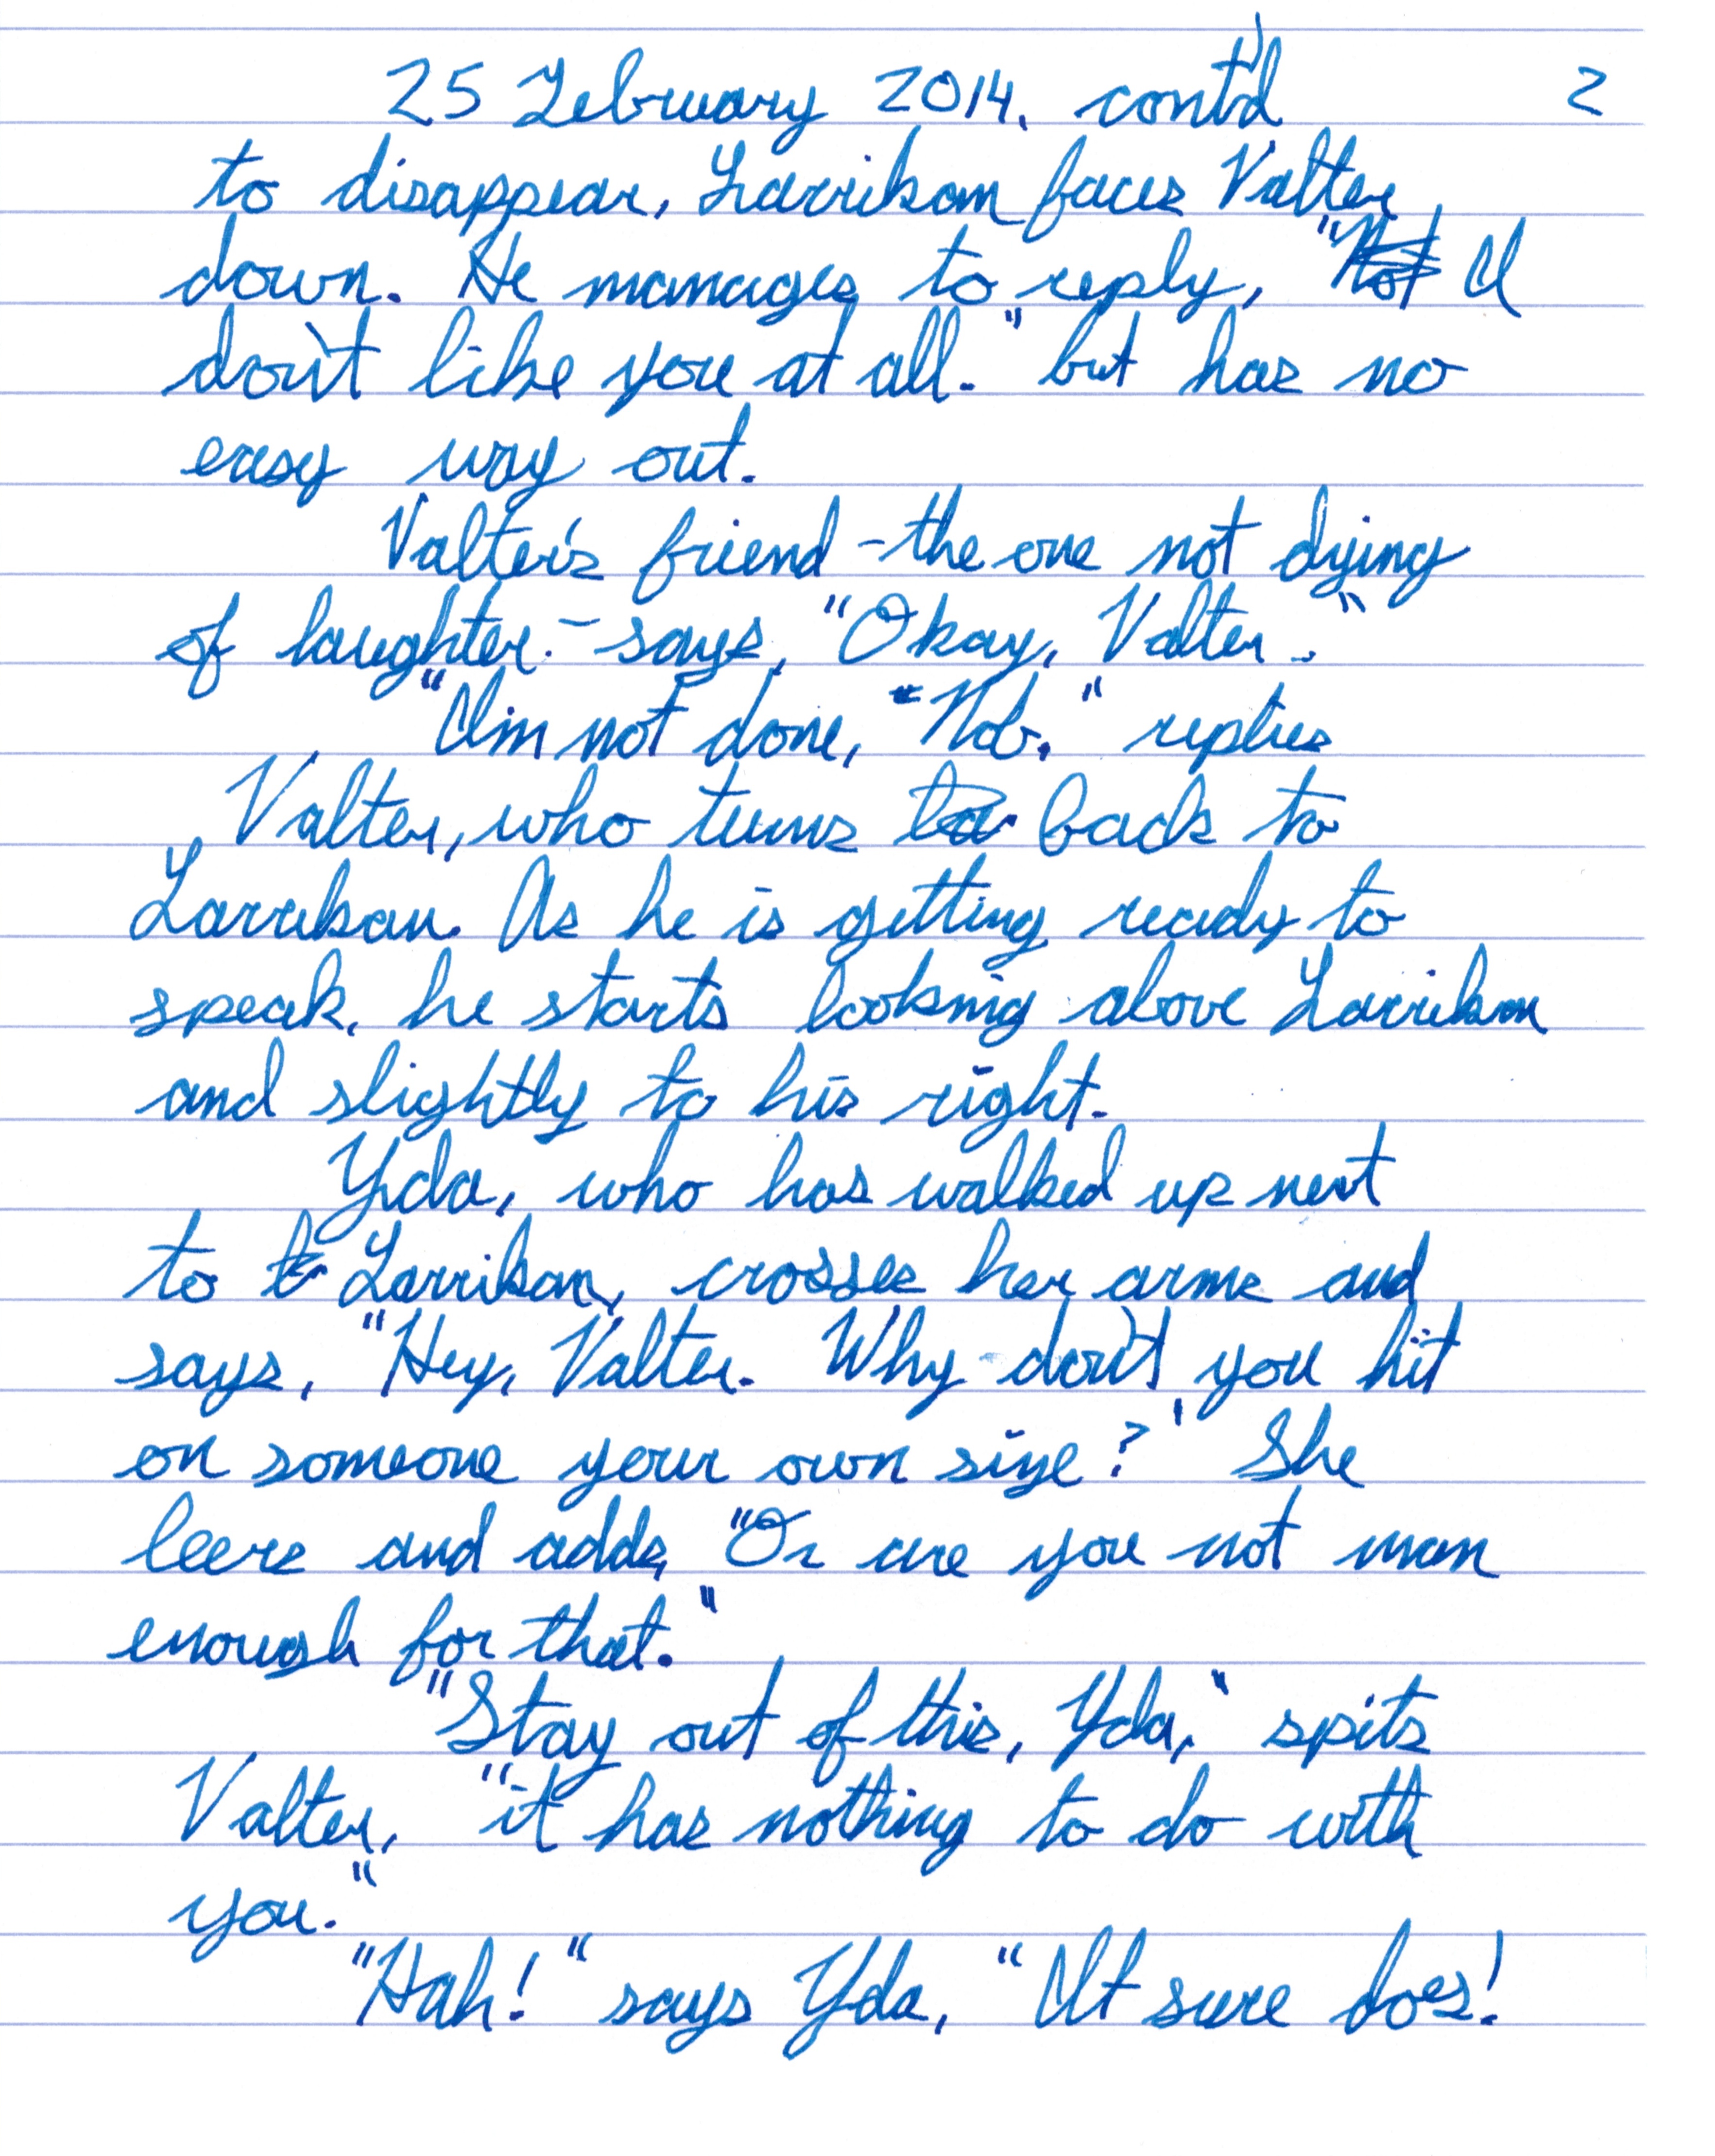 25 February 2014, cont'd 2
to disappear, Larrikan faces Valter
down. He manages to reply, "Not I
don't like you at all." but has no
easy way out.
Valter's friend - the one not dying
of laughter. - says, "Okay, Valter."
"I'm not done, "Nob." replies
Valter, who turns to back to
Larrikan. As he is getting ready to
speak, he starts looking above Larrikan
and slightly to his right.
Yda, who has walked up next
to t Larrikan, crosses her arms and
says, "Hey, Valter. Why don't you hit
on someone your own size?' She
leers and adds, "Or are you not man
enough for that."
"Stay out of this, Yda," spits
Valter, "it has nothing to do with
you."
"Hah!" says Yda, "It sure does!